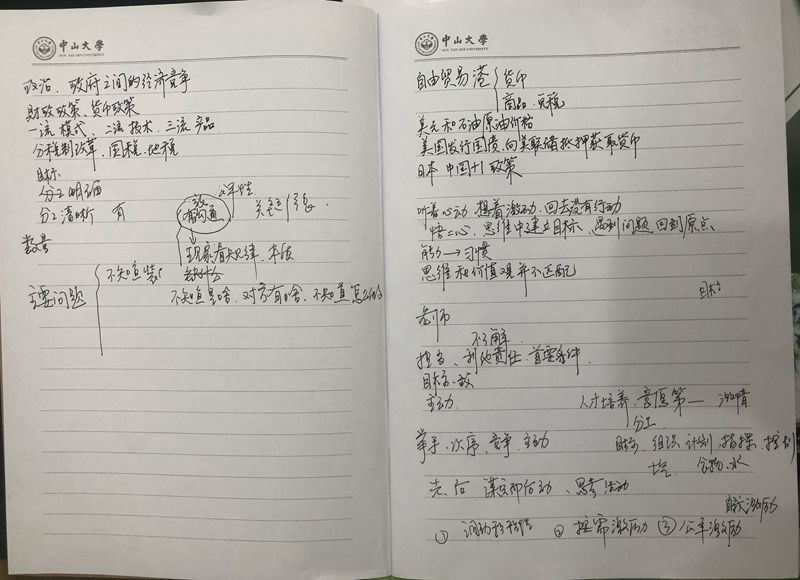 中山大學
SUN YAT-SEN UNIVERSITY
政治、政府之间的经济竞争
财政政策、货币政策
一流模式、二流技术、三流产品
分税制改革、国税、地税
目标
分工明确
分工清晰 有
效
有沟通
关键
数量
缺什么
主要问题
不知道
不知道是啥、对方有啥、不知道怎么
中山大學
SUN YAT-SEN UNIVERSITY
自由贸易港 货币
商品、免税
美元和石油原油价格
美国发行国债,向美联储抵押获取货币
日本 中国+1 政策
听着心动、想着激动、回去没有行动
悟=心、思维中建立目标、遇到问题 回到原点
能力→习惯
思维和价值观并不匹配
目标
老师
不了解
担当、利他责任、首要条件
目标、效
主动
人才培养、意愿第一 激情
分工
举手、次序、竞争、主动
目标、组织、计划、指挥、控制
食物、水
先、后 谋定而后动、思考 活动
自我激励
① 调动积极性 ② 按需激励 ③ 公平激励